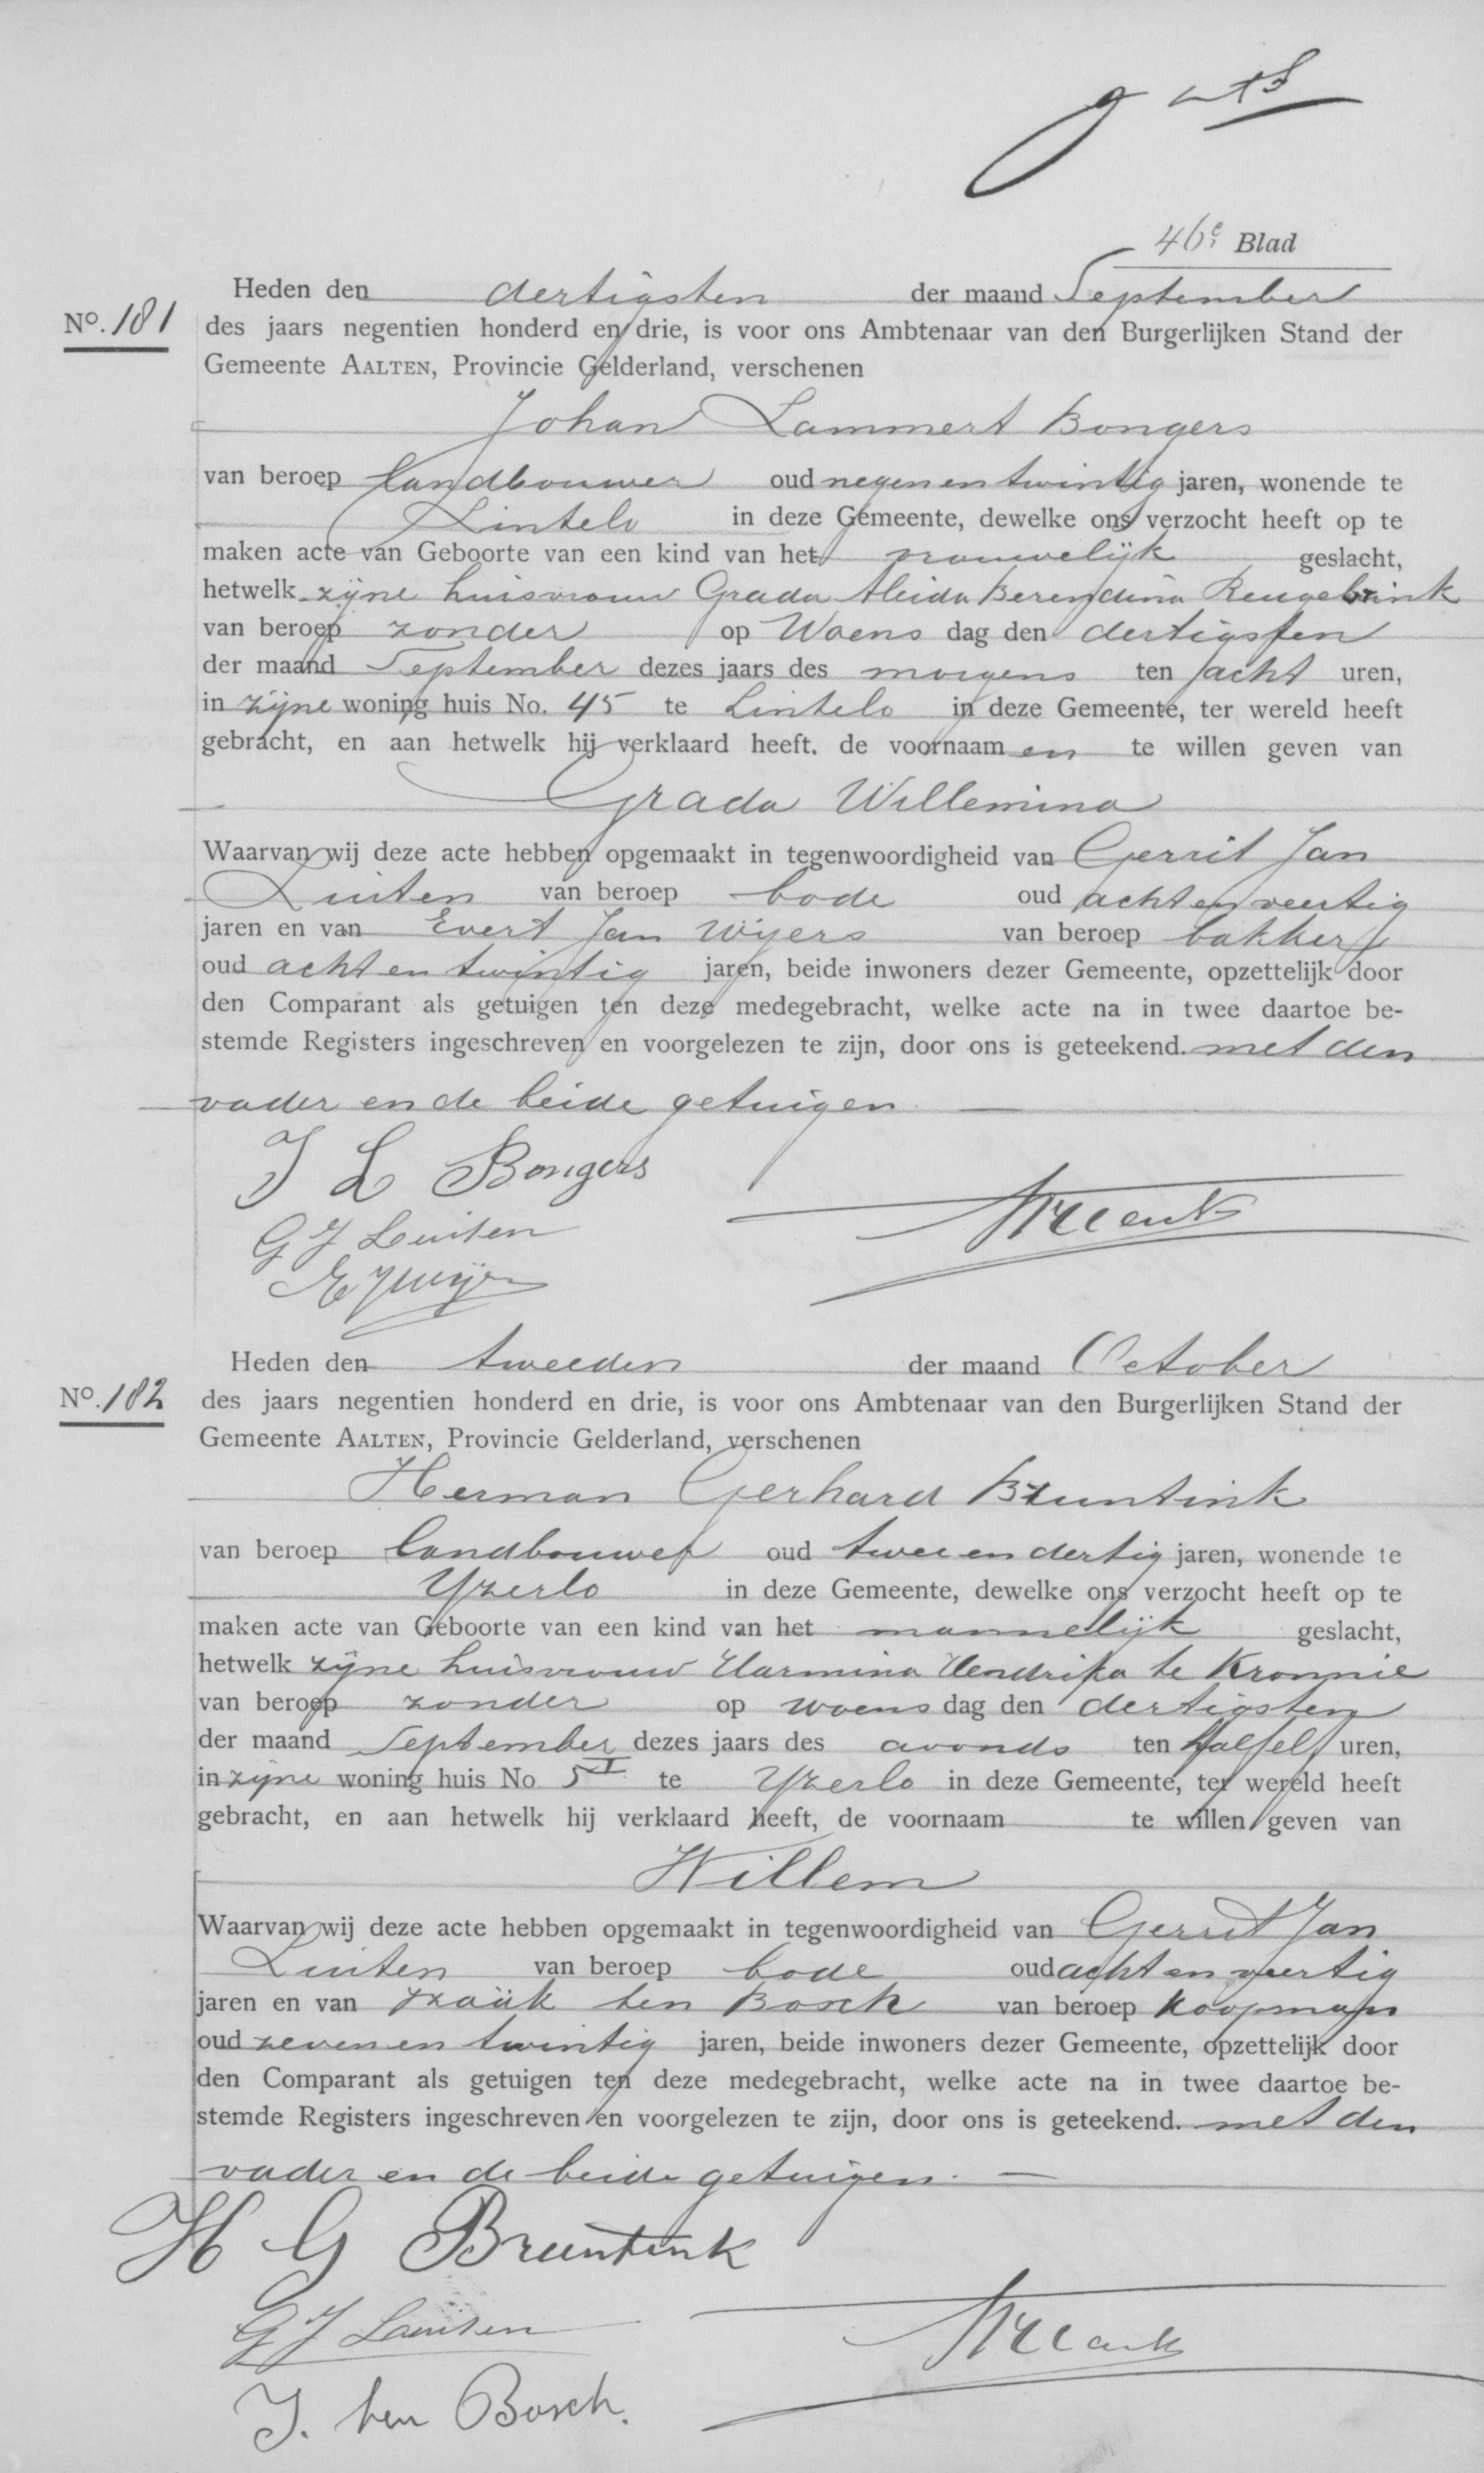 46e Blad
Heden den dertigsten der maand September
No. 181 des jaars negentien honderd en drie, is voor ons Ambtenaar van den Burgerlijken Stand der
Gemeente AALTEN, Provincie Gelderland, verschenen
Johan Lammert Bongers
van beroep landbouwer oud negen en twintig jaren, wonende te
Lintelo in deze Gemeente, dewelke ons verzocht heeft op te
maken acte van Geboorte van een kind van het vrouwelijk geslacht,
hetwelk zijne huisvrouw Grada Aleida Berendina Rengelink
van beroep zonder op Woensdag den dertigsten
der maand September dezes jaars des morgens ten acht uren,
in zijne woning huis No. 45 te Lintelo in deze Gemeente, ter wereld heeft
gebracht, en aan hetwelk hij verklaard heeft. de voornaamen te willen geven van
Grada Willemina
Waarvan wij deze acte hebben opgemaakt in tegenwoordigheid van Gerrit Jan
Luiten van beroep bode oud acht en veertig
jaren en van Evert Jan Wijers van beroep bakker
oud acht en twintig jaren, beide inwoners dezer Gemeente, opzettelijk door
den Comparant als getuigen ten deze medegebracht, welke acte na in twee daartoe be-
stemde Registers ingeschreven en voorgelezen te zijn, door ons is geteekend. met den
vader en de beide getuigen.
J L Bongers
G J Luiten
E J Wijers
Heden den tweeden der maand October
No. 182 des jaars negentien honderd en drie, is voor ons Ambtenaar van den Burgerlijken Stand der
Gemeente AALTEN, Provincie Gelderland, verschenen
Herman Gerhard Bruntink
van beroep landbouwer oud twee en dertig jaren, wonende te
Yzerlo in deze Gemeente, dewelke ons verzocht heeft op te
maken acte van Geboorte van een kind van het mannelijk geslacht,
hetwelk zijne huisvrouw Harmina Hendrika te Kronnie
van beroep zonder op woensdag den dertigsten
der maand September dezes jaars des avonds ten half elf uren,
in zijne woning huis No 5 I te Yzerlo in deze Gemeente, ter wereld heeft
gebracht, en aan hetwelk hij verklaard heeft, de voornaam te willen geven van
Willem
Waarvan wij deze acte hebben opgemaakt in tegenwoordigheid van Gerrit Jan
Luiten van beroep bode oud acht en veertig
jaren en van Izaäk ten Bosch van beroep koopman
oud zeven en twintig jaren, beide inwoners dezer Gemeente, opzettelijk door
den Comparant als getuigen ten deze medegebracht, welke acte na in twee daartoe be-
stemde Registers ingeschreven en voorgelezen te zijn, door ons is geteekend. met den
vader en de beide getuigen.
H G Bruntink
G J Luiten
J. ten Bosch.